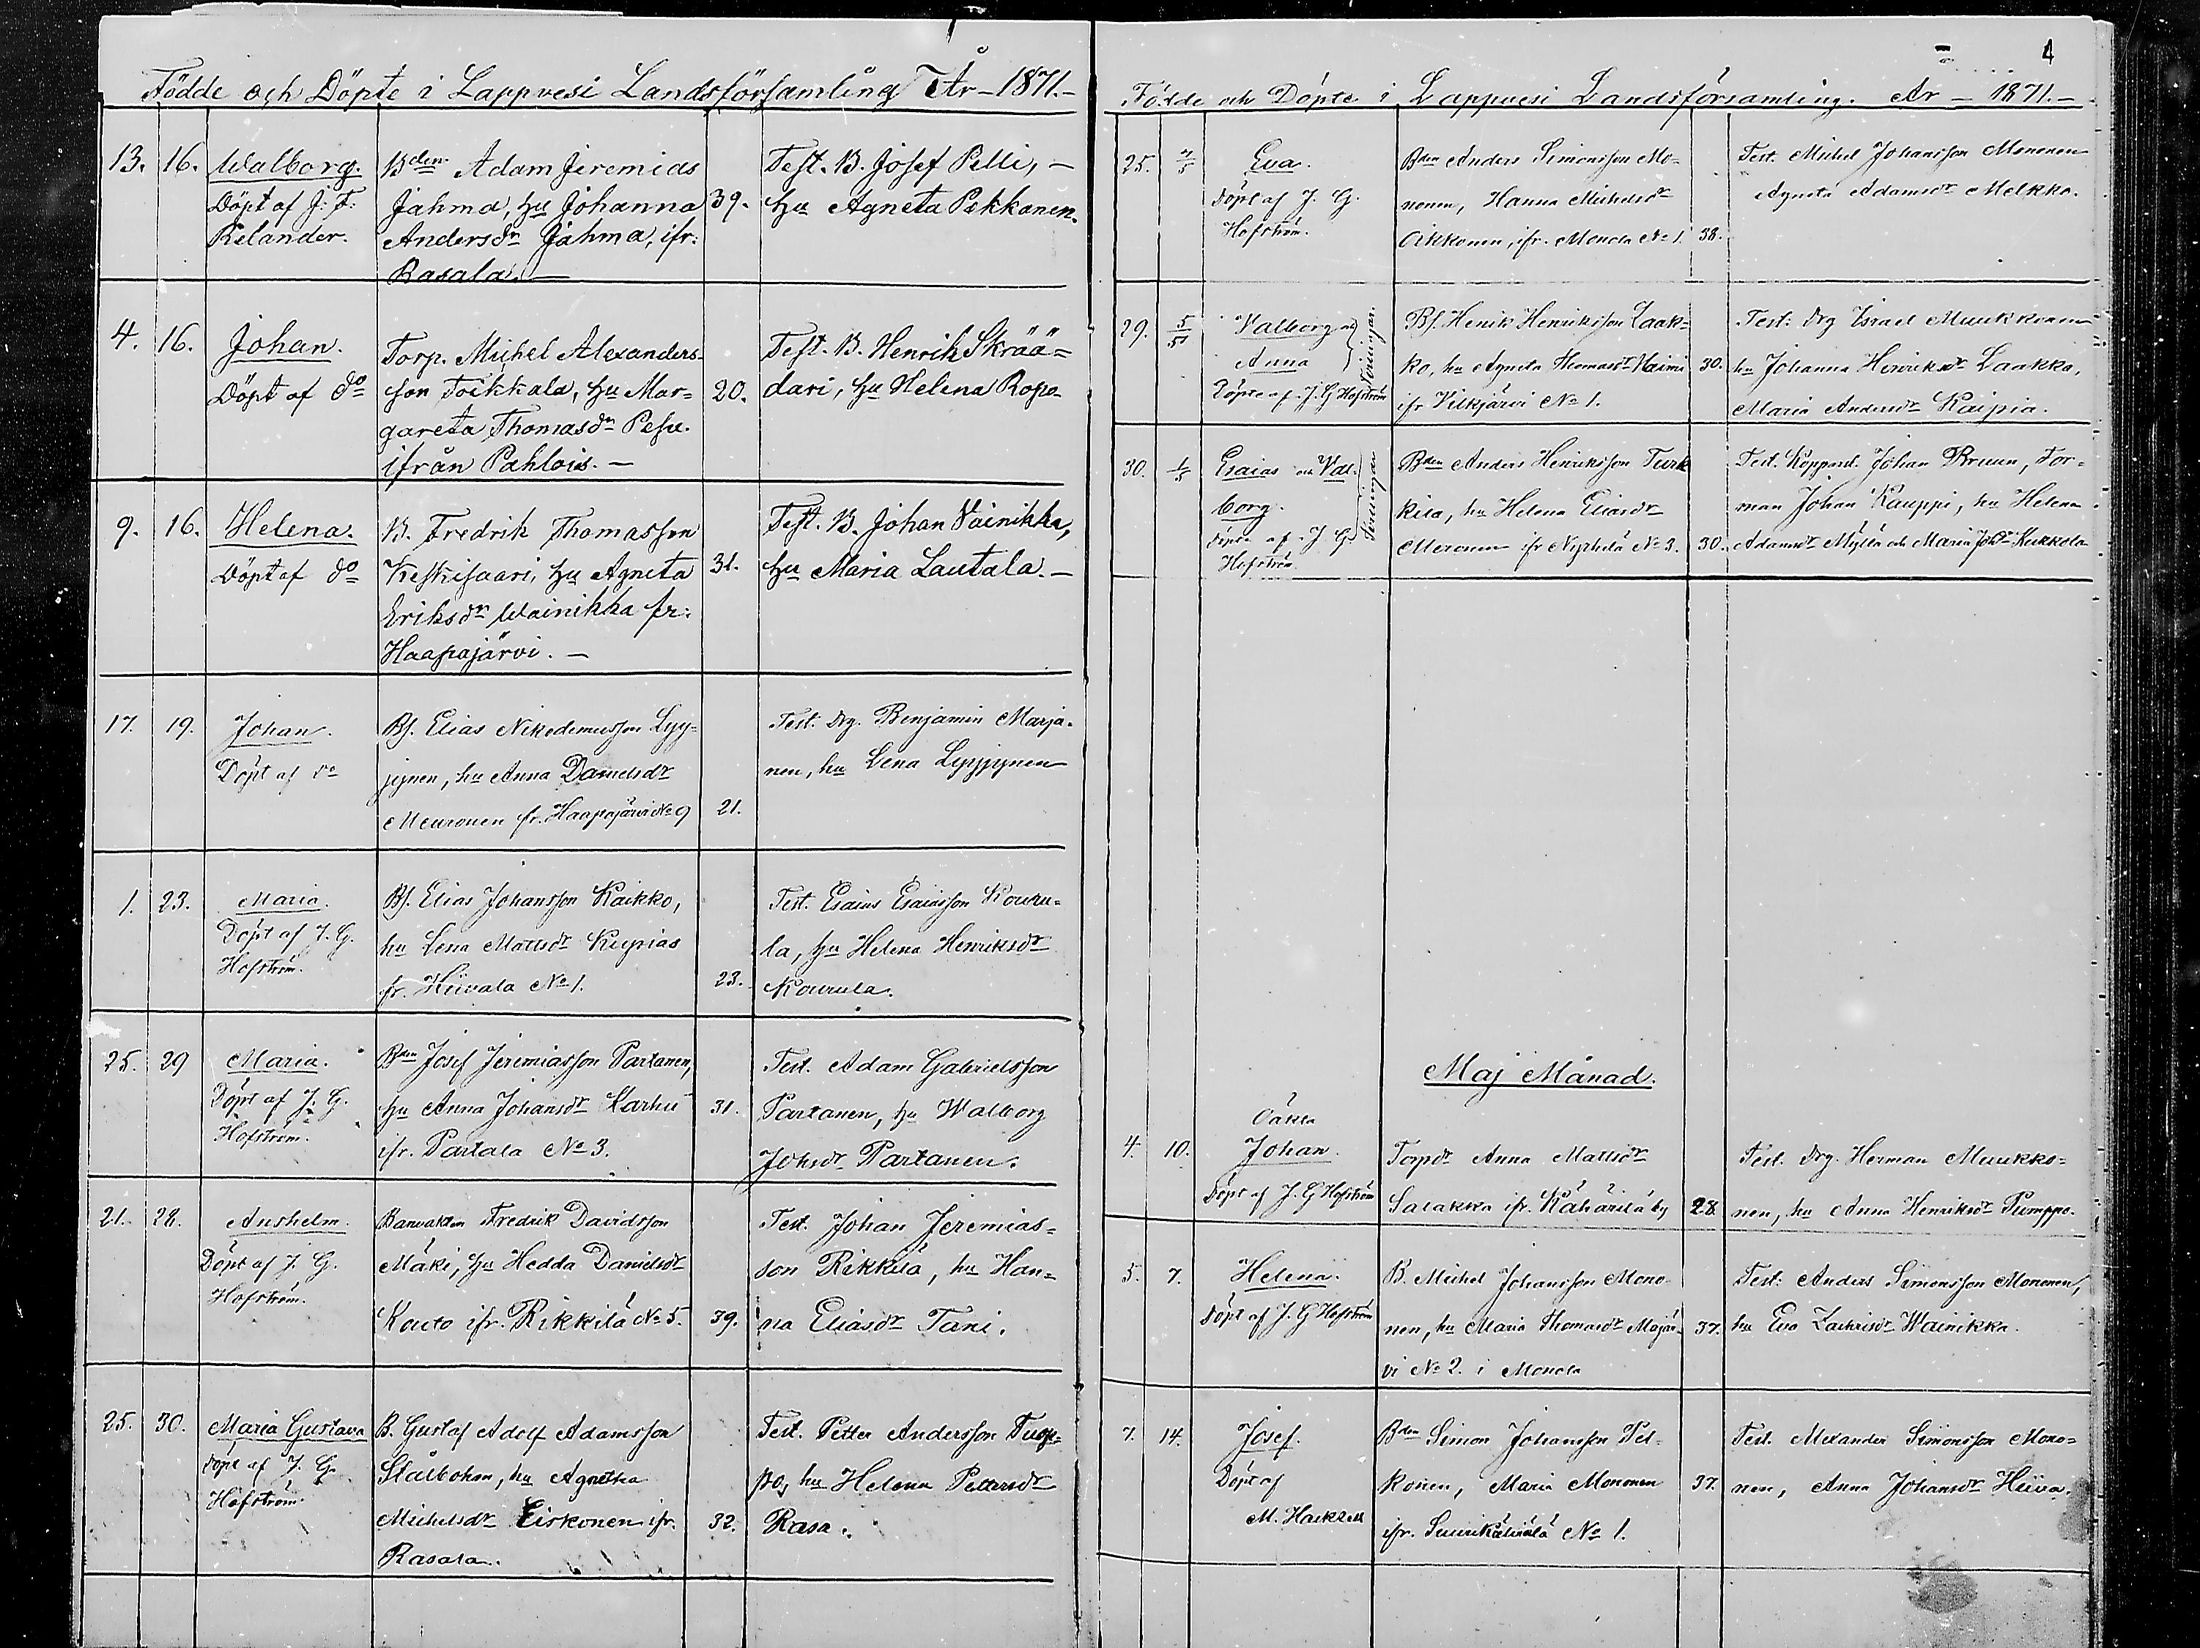 Födde och Döpte i Lappvesi Landsförsamling År 1871.
13. 16. Walborg. Bden Adam Jeremias Test. B. Josef Pelli, —
Döpt af J. F. Jahma, hu Johanna 39. hu Agneta Pekkanen.
Relander. Andersdr Jahma, ifr.
Rasala. —
4. 16. Johan. Torp. Michel Alexanders- Test. B. Henrik Skrää=
Döpt af do son Toikkala, hu Mar= 20. dari, hu Helena Ropo
gareta Thomasdr Pesu.
ifrån Pahlois. —
9. 16. Helena. B. Fredrik Thomasson Test. B. Johan Vainikka,
Döpt af do Keskisaari, hu Agneta 31. hu Maria Lautala. —
Eriksdr Wainikka fr.
Haapajärvi. —
17. 19. Johan. Bs. Elias Nikodemusson Lyy= Test. drg. Benjamin Marja-
Döpt af do jynen, hu Anna Danielsdr nen, hu Lena Lyyjynen
Meuronen fr. Haapajärvi No 9 21.
1. 23. Maria. Bs. Elias Johansson Kaikko, Test. Esaias Esaiasson Kouru=
Döpt af J. G. hu Lena Mattsdr Kupias la, hu Helena Henriksdr
Hofström. fr. Hiivala No 1. 23. Kourula.
25. 29 Maria. Bden Josef Jeremiasson Partanen, Test. Adam Gabrielsson
Döpt af J. G. hu Anna Johansdr Karhu 31. Partanen, hu Walborg
Hofström. ifr. Partala No 3. Johsdr Partanen.
21. 28. Anshelm. Banvakten Fredrik Davidsson Test. Johan Jeremias=
Döpt af J. G. Mäki, hu Hedda Danielsdr son Rikkilä, hu Han=
Hofström. Kouto ifr. Rikkilä No 5. 39. na Eliasdr Tani.
25. 30. Maria Gustava B. Gustaf Adolf Adamsson Test. Petter Andersson Tusp-
Döpt af J. G. Stålbohm, hu Agnetha po, hu Helena Pettersdr
Hofström. Michelsdr Eiskonen ifr. 32. Rasa.
Rasala.
4
Födde och Döpte i Lappvesi Landsförsamling. År — 1871. —
25. Eva. Bden Anders Simonsson Mo= Test. Michel Johansson Mononen
Döpt af J. G. nonen, Hanna Michelsdr Agneta Adamsdr Melkko.
Hofström. Oikkonen, ifr. Monola No 1. 38.
29. 5/5 Valborg och Bs. Henik Henriksson Laak= Test. drg Israel Muukkonen
Anna Tvillingar. ko, hu Agneta Thomasdr Naimi 30. hu Johanna Henriksdr Laakko,
Döpte af J. G Hofström ifr Vilkjärvi No 1. Maria Andersdr Kaipia.
30. 1/5 Esaias och Val- Bden Anders Henriksson Turk Test. Johan Bruun, For=
borg. Tvillingar kila, hu Helena Eliasdr man Johan Kauppi, hu Helena
döpta af J G Meronen ifr Nyrhilä No 3. 30. Adamsdr Myllä och Maria Johdr Kukkola
Hofström
Maj Månad.
Oäkta
4. 10. Johan. Torpdr Anna Mattsdr Test. drg. Herman Muukko=
Döpt af J. G Hofström Salakka ifr. Kähärilä by 28. nen, hu Anna Henriksdr Pumppo.
5. 7. Helena. B. Michel Johansson Mono- Test. Anders Simonsson Mononen,
Döpt af J. G Hofström nen, hu Maria Thomasdr Majär- 37. hu Eva Zachrisdr Wainikka.
vi No 2. i Monola
7. 14. Josef. Bden Simon Johansson Pel- Test. Alexander Simonsson Mono=
Döpt af konen, Maria Mononen 37. nen, Anna Johansdr Hiiva.
M. Hackzell ifr. No 1.